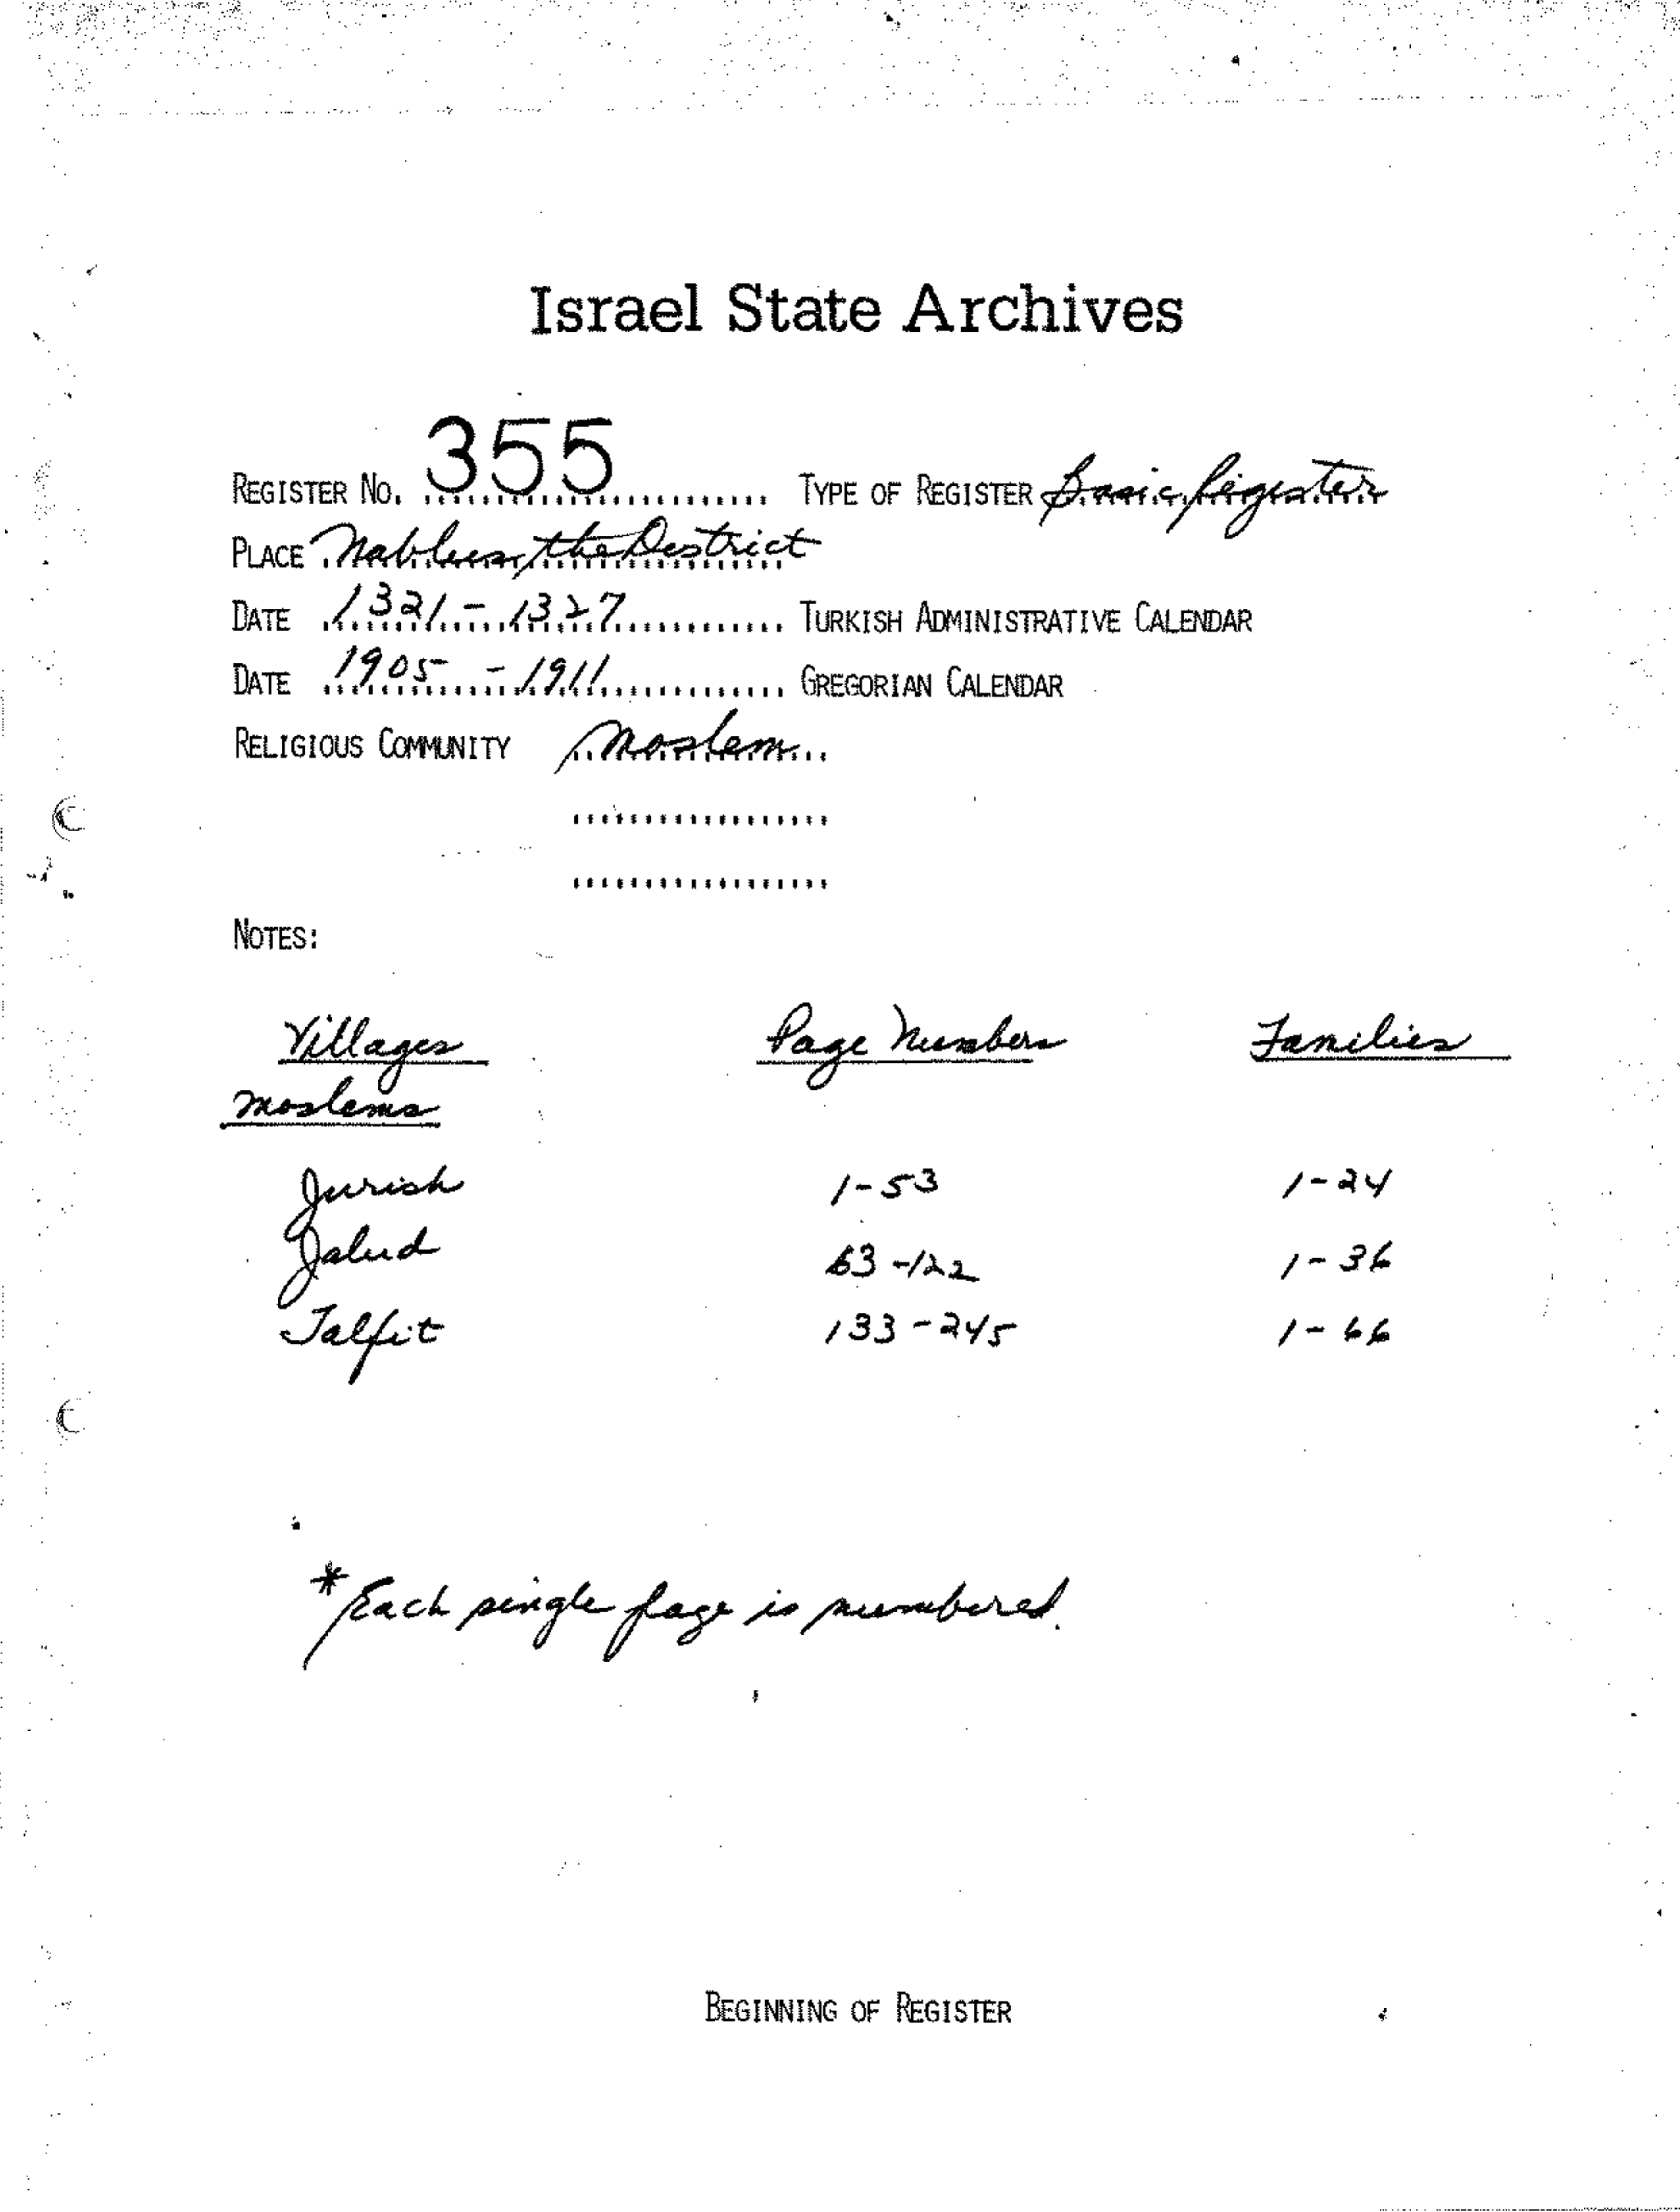 Israel State Archives
REGISTER NO. 355 TYPE OF REGISTER Basic Register
PLACE Nablus, the District
DATE 1321 - 1327 TURKISH ADMINISTRATIVE CALENDAR
DATE 1905 - 1911 GREGORIAN CALENDAR
RELIGIOUS COMMUNITY Moslem
NOTES:
Villages Page Numbers Families
Moslems
Jurish 1-53 1-24
Jalud 63-122 1-36
Talfit 133-245 1-66
* Each single page is numbered.
BEGINNING OF REGISTER